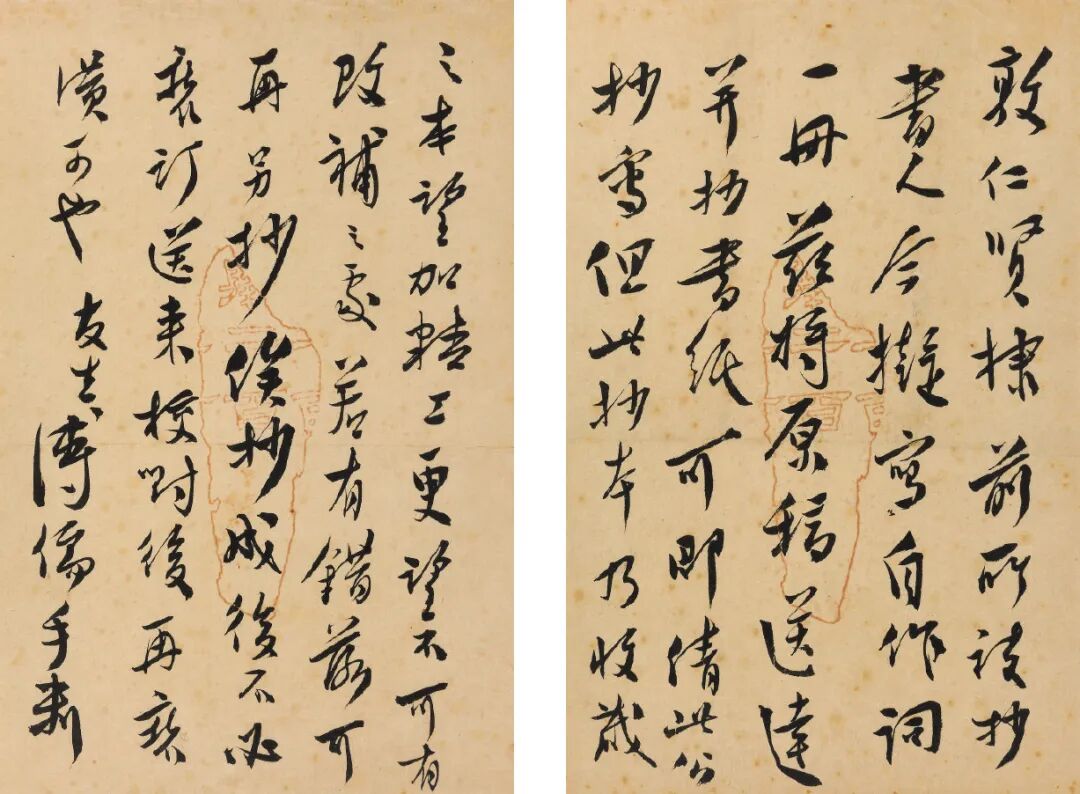 敦仁贤棣前所谈抄
书人今拟写自作词
一册兹将原稿送达
并抄书纸可即倩此公
抄写但此抄本乃收藏
之本望加精工更望不可有
改补之处若有错落可
再另抄俟抄成后不必
装订送来校对后再装
潢可也 友生溥儒手刺